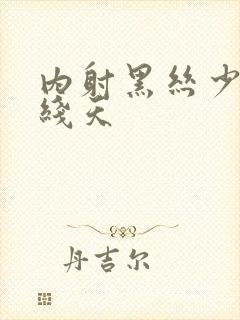 内射黑丝少
线天
丹吉尔